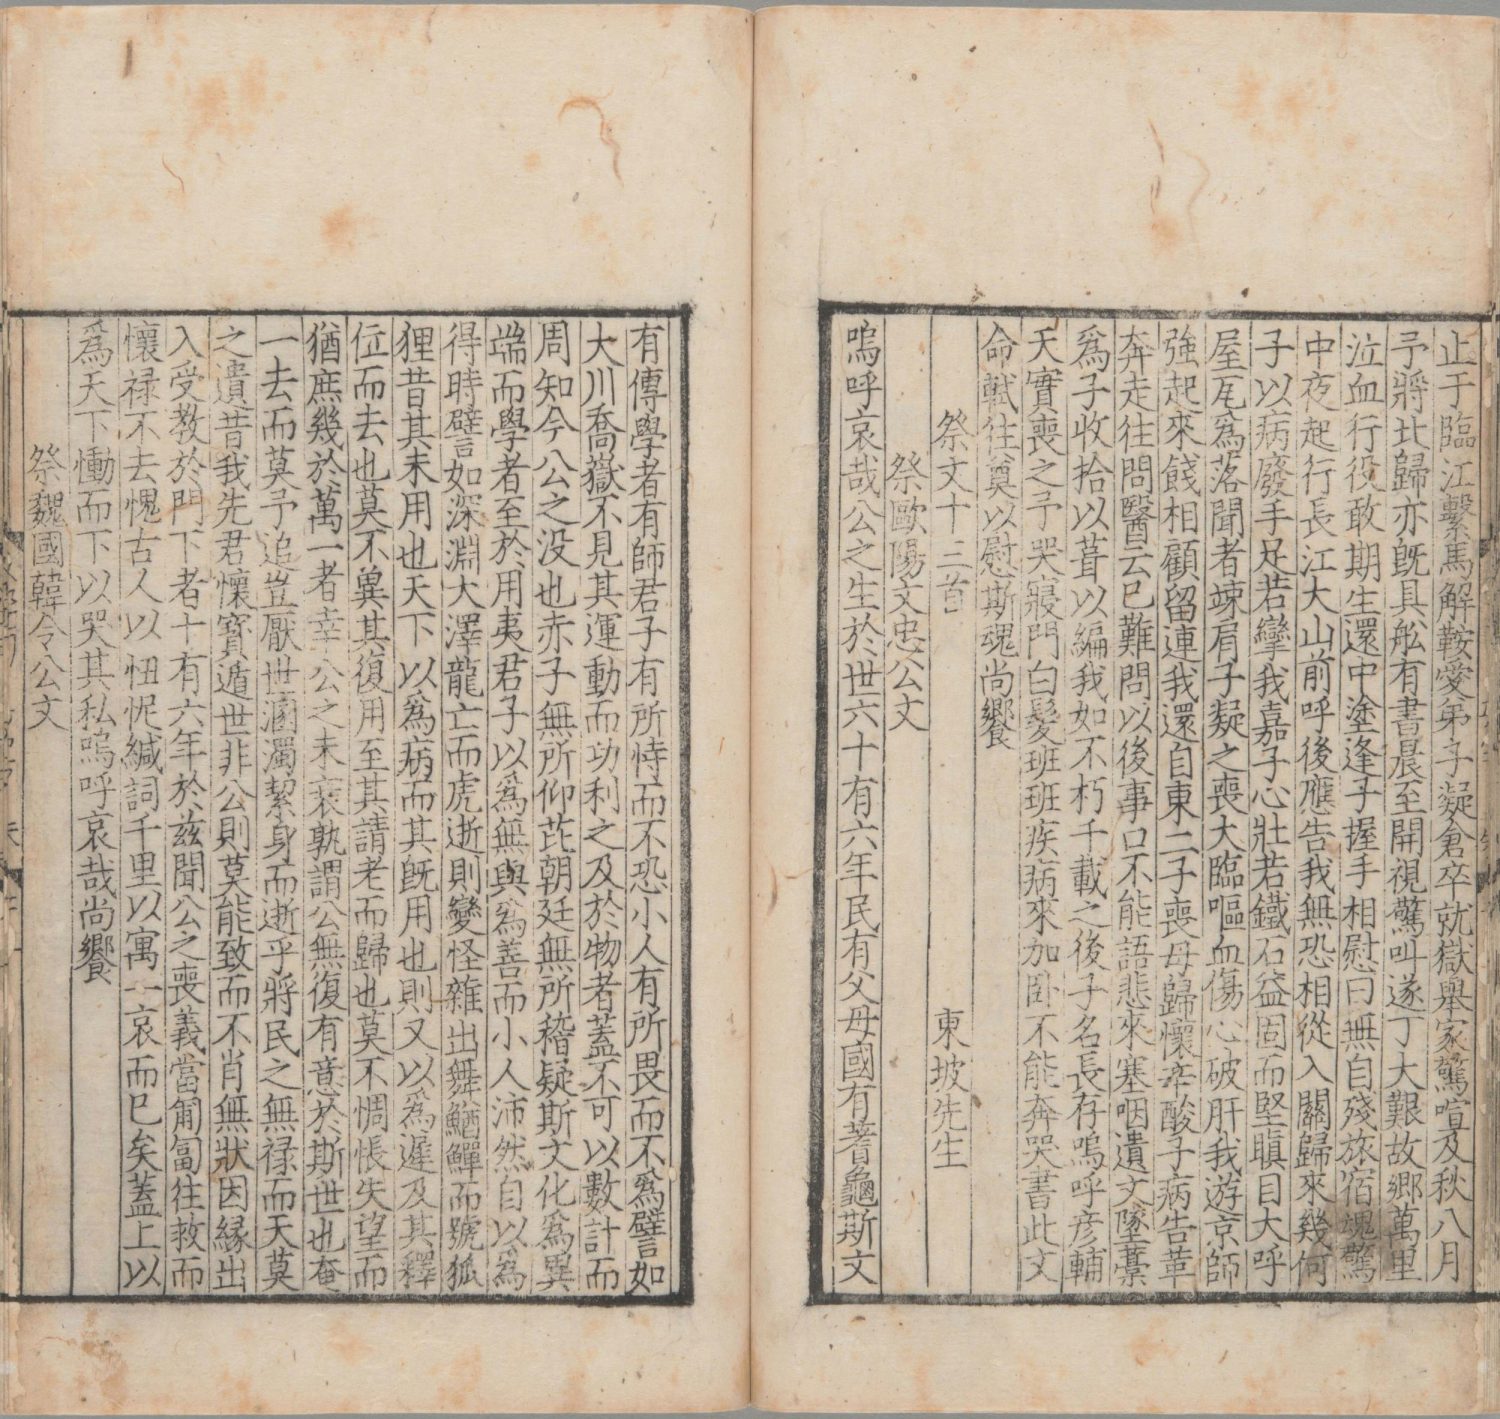 止于臨江繫馬解鞍愛弟子凝倉卒就獄舉家驚喧及秋八月
予將北歸亦既具舩有書晨至開視驚叫遂丁大艱故鄉萬里
泣血行役敢期生還中塗逢子握手相慰曰無自殘旅宿魂驚
中夜起行長江大山前呼後應告我無恐相從入關歸來幾何
子以病廢手足若攣我嘉子心壯若鐵石益固而堅瞋目大呼
屋瓦爲落聞者竦肩子凝之喪大臨嘔血傷心破肝我游京師
強起來餞相顧留連我還自東二子喪母歸懷辛酸子病告革
奔走往問醫云已難問以後事口不能語悲來塞咽遺文墜藁
爲子收拾以葺以編我如不朽千載之後子名長存嗚呼彦輔
天實喪之予哭寢門白髮班班疾病來加卧不能奔哭書此文
命軾往奠以慰斯魂尚饗
祭文十三首 東坡先生
祭歐陽文忠公文
嗚呼哀哉公之生於世六十有六年民有父母國有蓍龜斯文
有傳學者有師君子有所恃而不恐小人有所畏而不爲譬如
大川喬嶽不見其運動而功利之及於物者蓋不可以數計而
周知今公之没也赤子無所仰芘朝廷無所稽疑斯文化爲異
端而學者至於用夷君子以爲無與爲善而小人沛然自以爲
得時譬如深淵大澤龍亡而虎逝則變怪雜出舞鰌鱓而號狐
狸昔其未用也天下以爲病而其既用也則又以爲遲及其釋
位而去也莫不兾其復用至其請老而歸也莫不惆悵失望而
猶庶幾於萬一者幸公之未衰孰謂公無復有意於斯世也奄
一去而莫予追豈厭世溷濁絜身而逝乎將民之無禄而天莫
之遺昔我先君懷寳遁世非公則莫能致而不肖無狀因緣出
入受教於門下者十有六年於兹聞公之喪義當匍匐往救而
懷禄不去愧古人以忸怩緘詞千里以寓一哀而已矣蓋上以
爲天下慟而下以哭其私嗚呼哀哉尚饗
祭魏國韓令公文